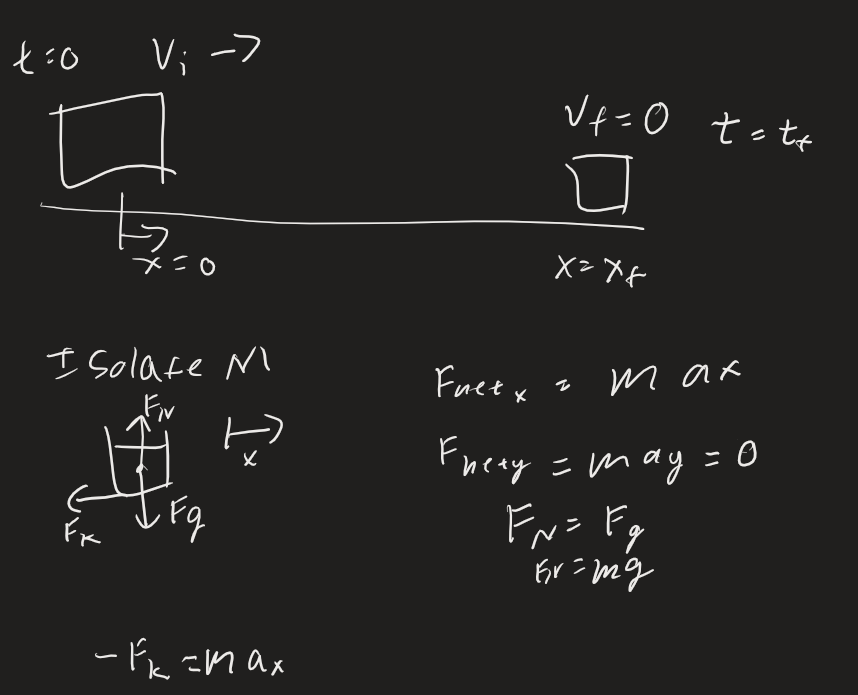 t=0 Vi →
Vf=0 t=tf
x=0
x=xf
Isolate M
FN
x
Fk
Fg
Fnetx = max
Fnety = may = 0
FN = Fg
FN = mg
-Fk = max